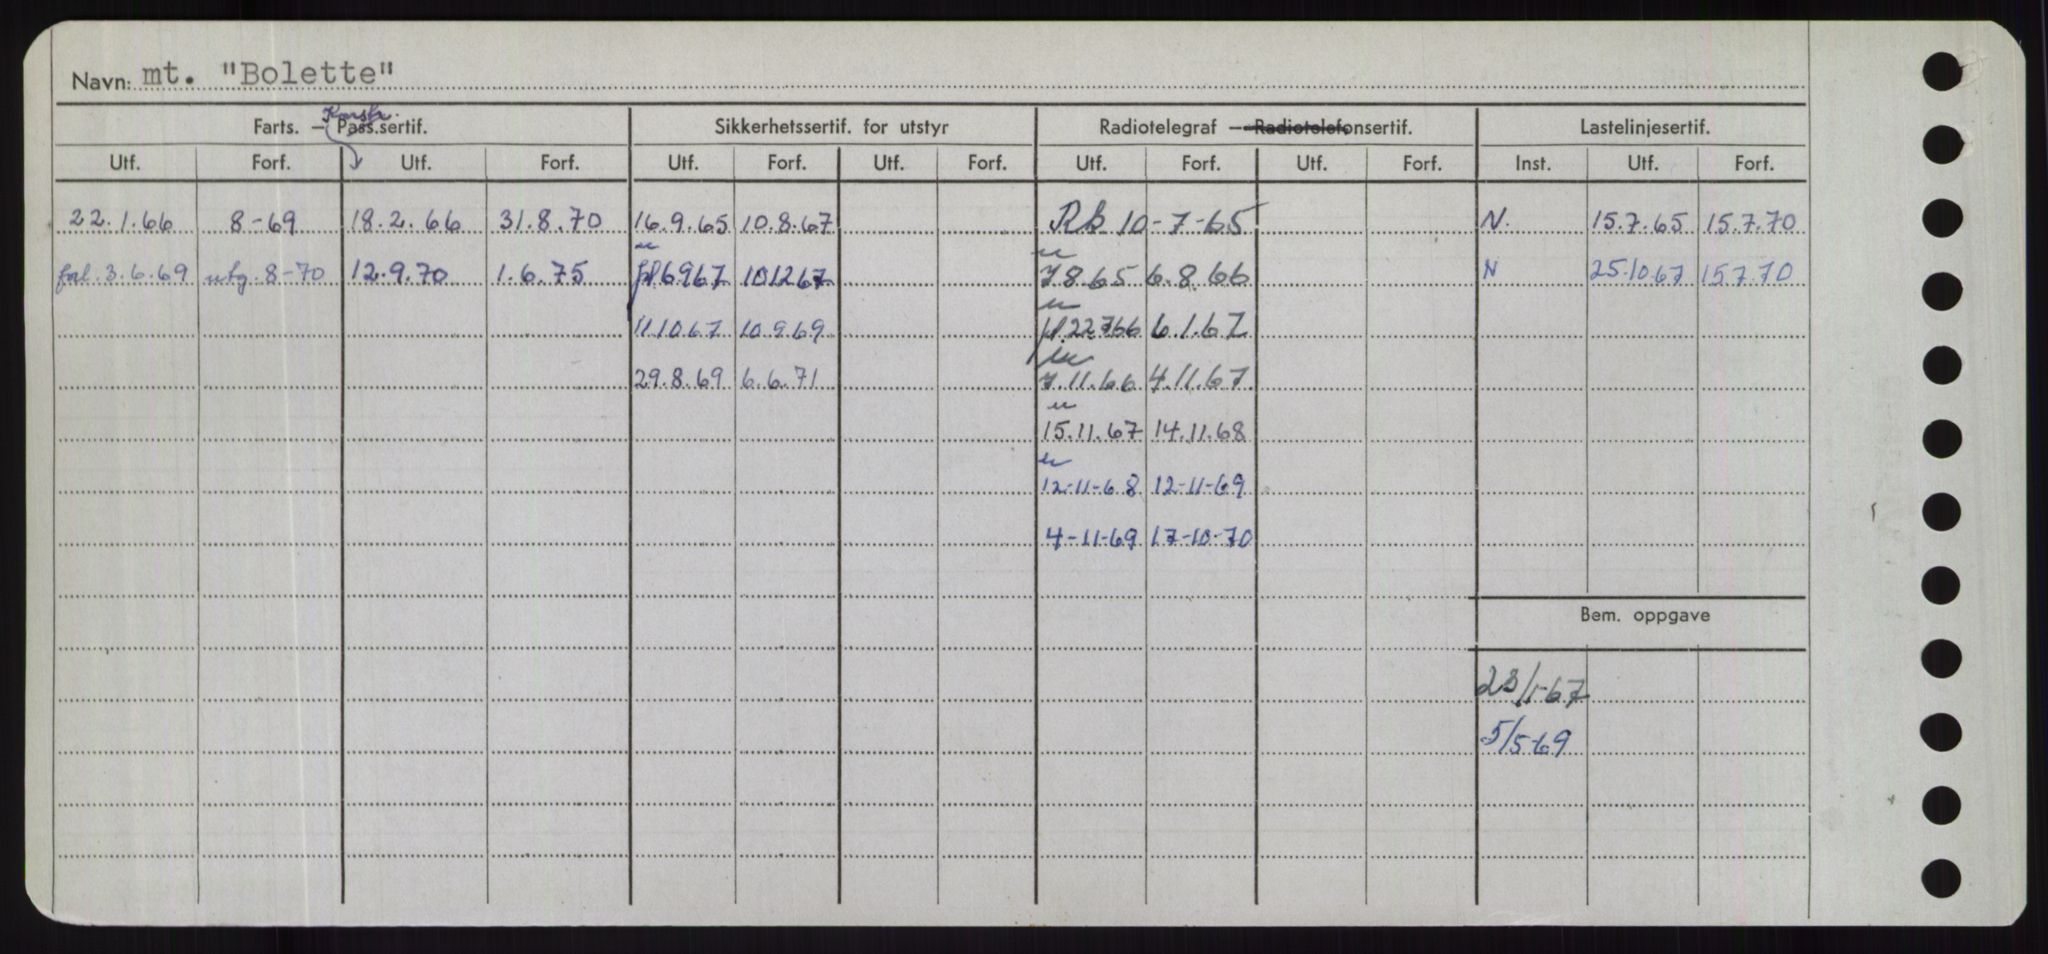 Navn: mt. "Bolette"
Konstr.
Farts. — Pass.sertif. Sikkerhetssertif. for utstyr Radiotelegraf — Radiotelefonsertif. Lastelinjesertif.
Utf. Forf. Utf. Forf. Utf. Forf. Utf. Forf. Utf. Forf. Utf. Forf. Inst. Utf. Forf.
22.1.66 8-69 18.2.66 31.8.70 16.9.65 10.8.67 Rk 10-7-65 N. 15.7.65 15.7.70
fol. 3.6.69 utg. 8-70 12.9.70 1.6.75 fl 6967 101267 7.8.65 6.8.66 N 25.10.67 15.7.70
11.10.67 10.9.69 fl.22766 6.1.67
29.8.69 6.6.71 7.11.66 4.11.67
15.11.67 14.11.68
12-11-68 12-11-69
4-11-69 17-10-70
Bem. oppgave
23/1-67
5/5-69